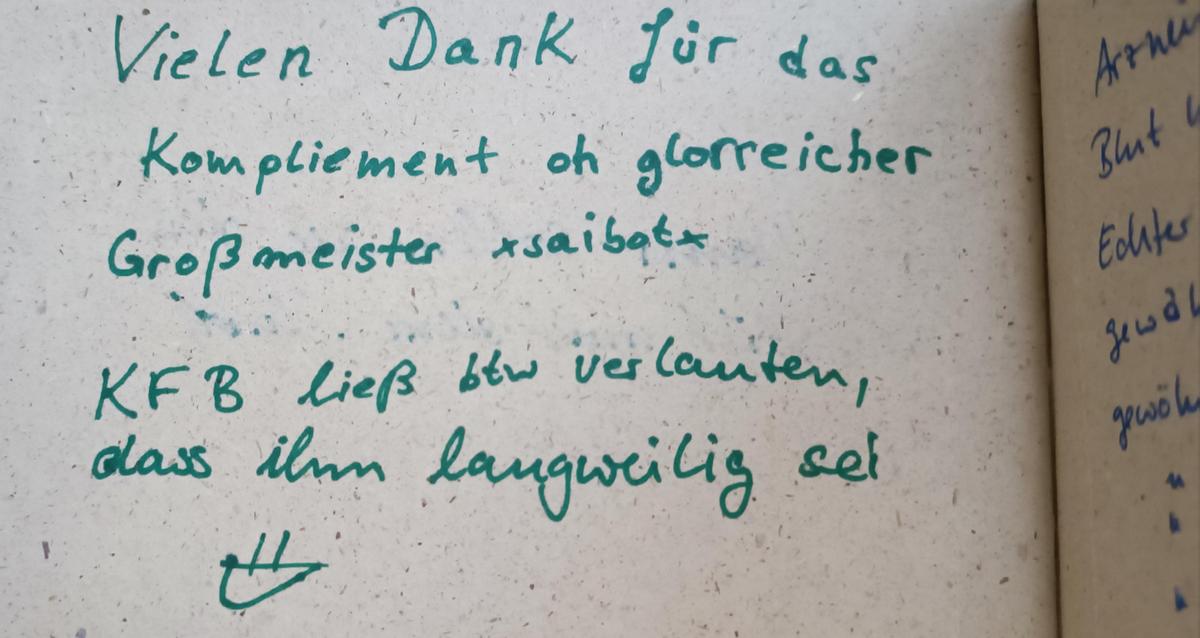 Vielen Dank für das
Kompliement oh glorreicher
Großmeister xsaibotx
KFB ließ btw verlauten,
dass ihm langweilig sei
Blut
Echter